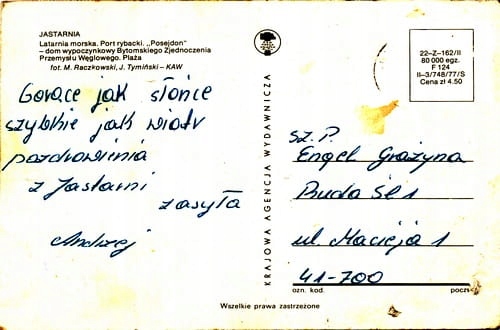 JASTARNIA
Latarnia morska. Port rybacki. „Posejdon"
– dom wypoczynkowy Bytomskiego Zjednoczenia
Przemysłu Węglowego. Plaża
fot. M. Raczkowski, J. Tymiński – KAW
Gorące jak słońce
szybkie jak wiatr
pozdrowienia
z Jastarni
zasyła
Andrzej
KRAJOWA AGENCJA WYDAWNICZA
22–Z–162/II
80 000 egz.
F 124
II–3/748/77/S
Cena zł 4.50
Sz. P.
Engel Grażyna
Ruda Śl 1
ul. Macieja 1
41-700
ozn. kod.
poczt
Wszelkie prawa zastrzeżone